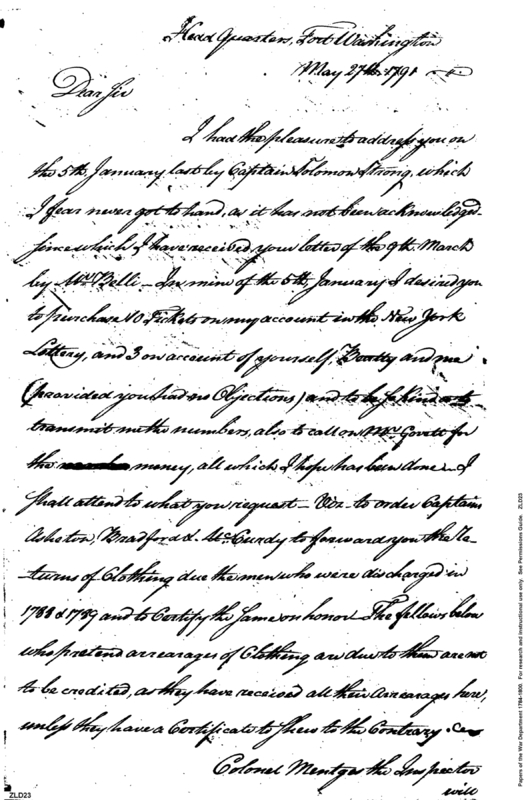 Head Quarters, Fort Washington
May 27th 1791
Dear Sir
I had the pleasure to address you on
the 5th January last by Captain Solomon Strong, which
I fear never got to hand, as it has not been acknowledged
since which I have received your letter of the 9th March
by Mr. Belli - In mine of the 5th January I desired you
to purchase 10 Tickets on my account in the New York
Lottery, and 3 on account of yourself, Beatty and me
(provided you had no Objections) and to be so kind as to
transmit me the numbers, also to call on Mr. Govett for
the money, all which I hope has been done - I
shall attend to what you request - Viz - to order Captains
Asheton, Bradford & McCurdy to forward you the Re-
-turns of Clothing due the men who were discharged in
1788 & 1789 and to Certify the same on honor - The fellows below
who pretend arrearages of Clothing are due to them are not
to be credited, as they have received all their Arrearages here,
unless they have a Certificate to shew to the Contrary
Colonel Mentges the Inspector
will
ZLD23
Papers of the War Department 1784-1800. For research and instructional use only. See Permissions Guide. ZLD23